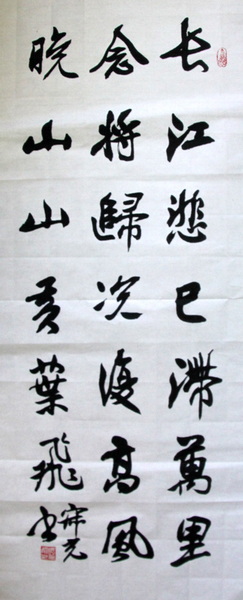 长江悲已滞萬里
念将歸况復高風
晚山山黄葉飛
书